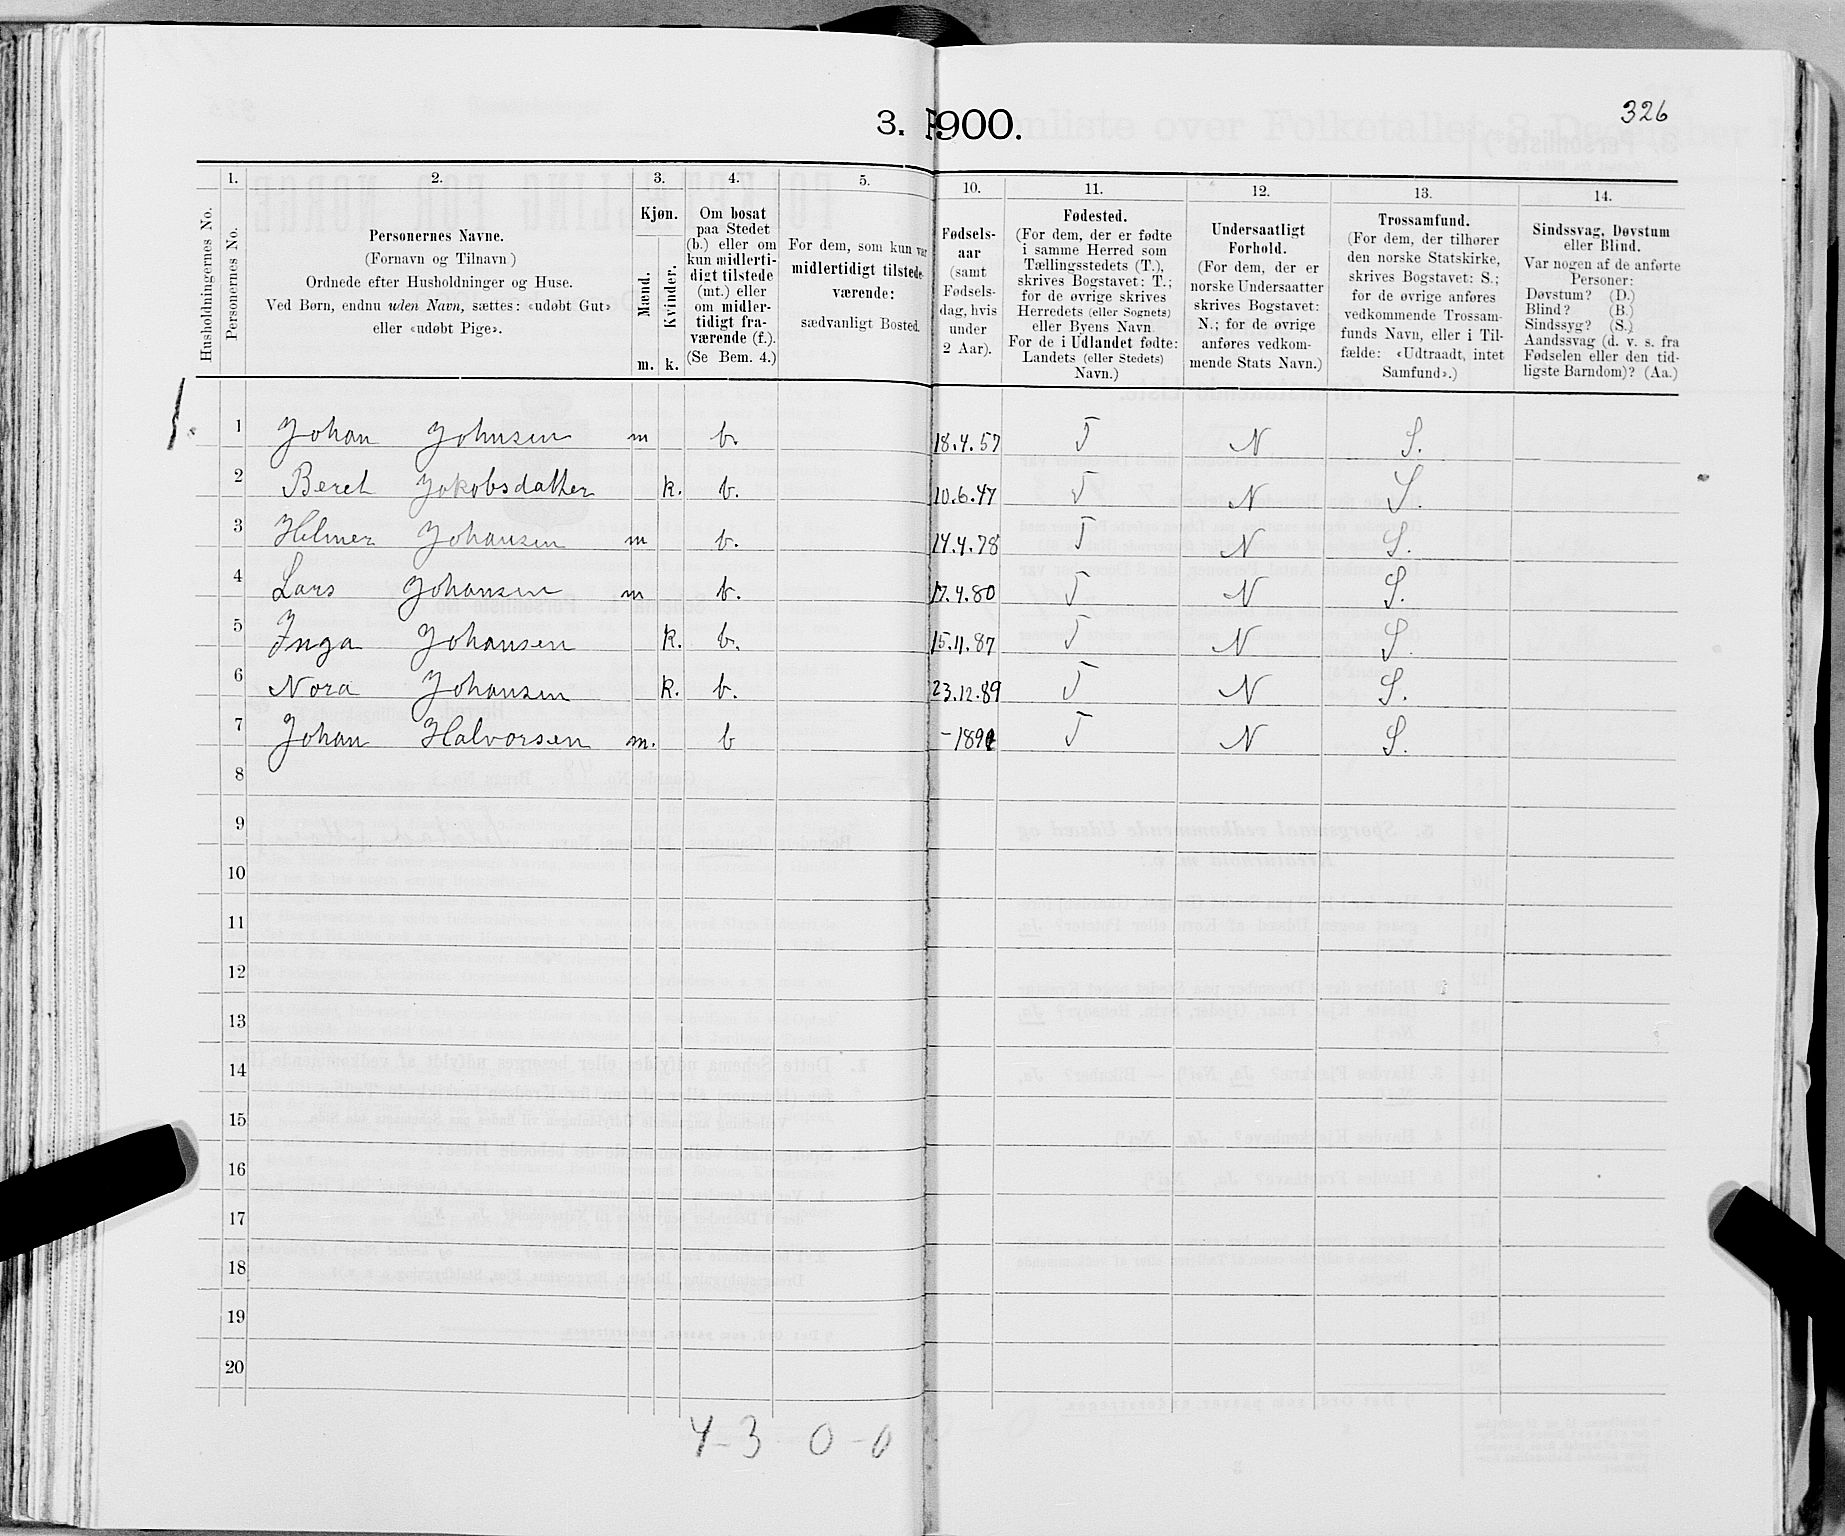 326
3. 1900.
1. 2. 3. 4. 5. 10. 11. 12. 13. 14.
Husholdningernes No.
Personernes No.
Personernes Navne.
(Fornavn og Tilnavn)
Ordnede efter Husholdninger og Huse.
Ved Børn, endnu uden Navn, sættes: «udøbt Gut»
eller «udøbt Pige».
Kjøn.
Mænd.
Kvinder.
m. k.
Om bosat
paa Stedet
(b.) eller om
kun midlerti-
digt tilstede
(mt.) eller
om midler-
tidigt fra-
værende (f.).
(Se Bem. 4.)
For dem, som kun var
midlertidigt tilstede-
værende:
sædvanligt Bosted.
Fødsels-
aar
(samt
Fødsels-
dag, hvis
under
2 Aar).
Fødested.
(For dem, der er fødte
i samme Herred som
Tællingsstedets (T.),
skrives Bogstavet: T.;
for de øvrige skrives
Herredets (eller Sognets)
eller Byens Navn.
For de i Udlandet fødte:
Landets (eller Stedets)
Navn.)
Undersaatligt
Forhold.
(For dem, der er
norske Undersaatter
skrives Bogstavet:
N.; for de øvrige
anføres vedkom-
mende Stats Navn.)
Trossamfund.
(For dem, der tilhører
den norske Statskirke,
skrives Bogstavet: S.;
for de øvrige anføres
vedkommende Trossam-
funds Navn, eller i Til-
fælde: «Udtraadt, intet
Samfund».)
Sindssvag, Døvstum
eller Blind.
Var nogen af de anførte
Personer:
Døvstum? (D.)
Blind? (B.)
Sindssyg? (S.)
Aandssvag (d. v. s. fra
Fødselen eller den tid-
ligste Barndom)? (Aa.)
1. 1 Johan Johnsen m b. 18.4.57 T N S.
2 Beret Jakobsdatter k. b. 10.6.47 T N S.
3 Helmer Johansen m b. 14.4.78 T N S.
4 Lars Johansen m b. 17.4.80 T N S.
5 Inga Johansen k. b. 15.11.87 T N S.
6 Nora Johansen k. b. 23.12.89 T N S.
7 Johan Halvorsen m. b T N S.
8
9
10
11
12
13
14
15
16
17
18
19
20
4-3 0-0